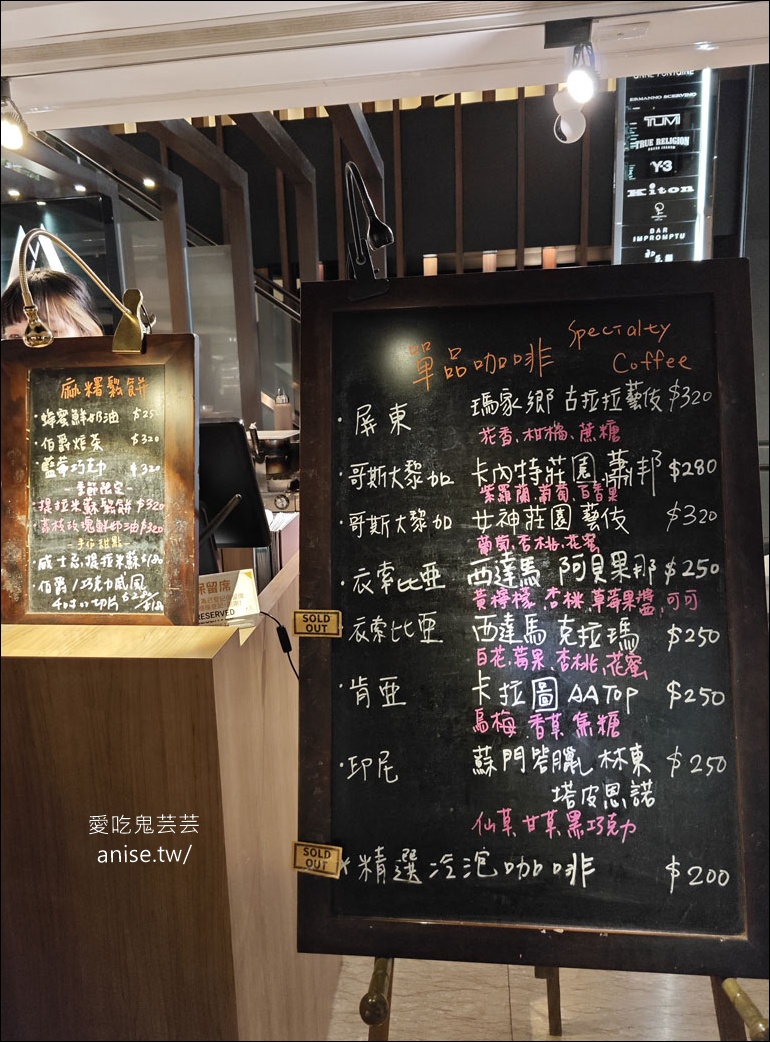 ANNE FONTAINE
ERMANNO SCERVINO
TUMI
TRUE RELIGION
Y-3
Kiton
BAR
IMPROMPTU
單品咖啡 Specialty
Coffee
·屏東 瑪家鄉 古拉拉藝伎 $320
花香、柑橘、蔗糖
·哥斯大黎加 卡內特莊園 蕭邦 $280
紫羅蘭、葡萄、百香果
·哥斯大黎加 女神莊園藝伎 $320
葡萄、杏桃、花蜜
·衣索比亞 西達馬 阿貝果那 $250
黃檸檬、杏桃、草莓果醬、可可
SOLD
OUT
·衣索比亞 西達馬 克拉瑪 $250
白花、莓果、杏桃、花蜜
·肯亞 卡拉圖 AA TOP $250
烏梅、香草、焦糖
·印尼 蘇門答臘 林東 $250
塔皮恩諾
仙草、甘草、黑巧克力
SOLD
OUT
*精選冷泡咖啡 $200
麻糬鬆餅
·蜂蜜鮮奶油 $25
·伯爵焙茶 $320
·藍莓巧克力 $320
季節限定
·提拉米蘇鬆餅 $320
·荔枝玫瑰鮮奶油 $320
手作甜點
·威士忌提拉米蘇 $180
·伯爵/巧克力戚風
4吋/切片
保留席
RESERVED
愛吃鬼芸芸
anise.tw/